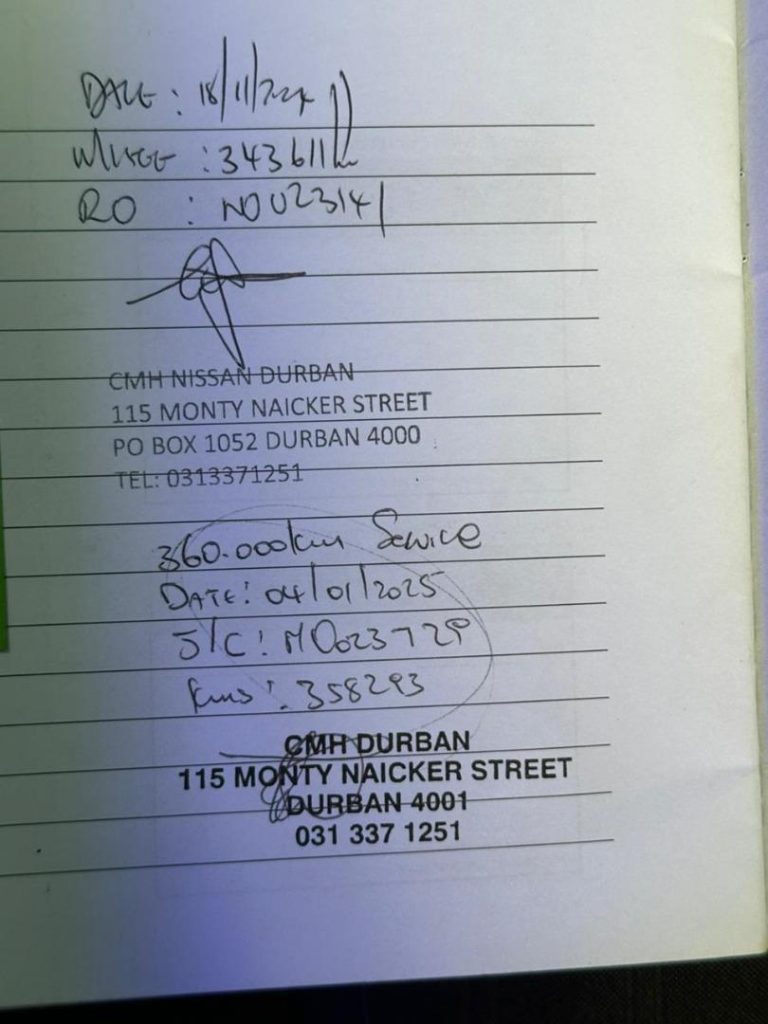 DATE : 18/11/2024
MILAGE : 343611km
RO : NOU23141
CMH NISSAN DURBAN
115 MONTY NAICKER STREET
PO BOX 1052 DURBAN 4000
TEL: 0313371251
360.000km Service
DATE: 04/01/2025
J/C:
Kms: 358293
CMH DURBAN
115 MONTY NAICKER STREET
DURBAN 4001
031 337 1251